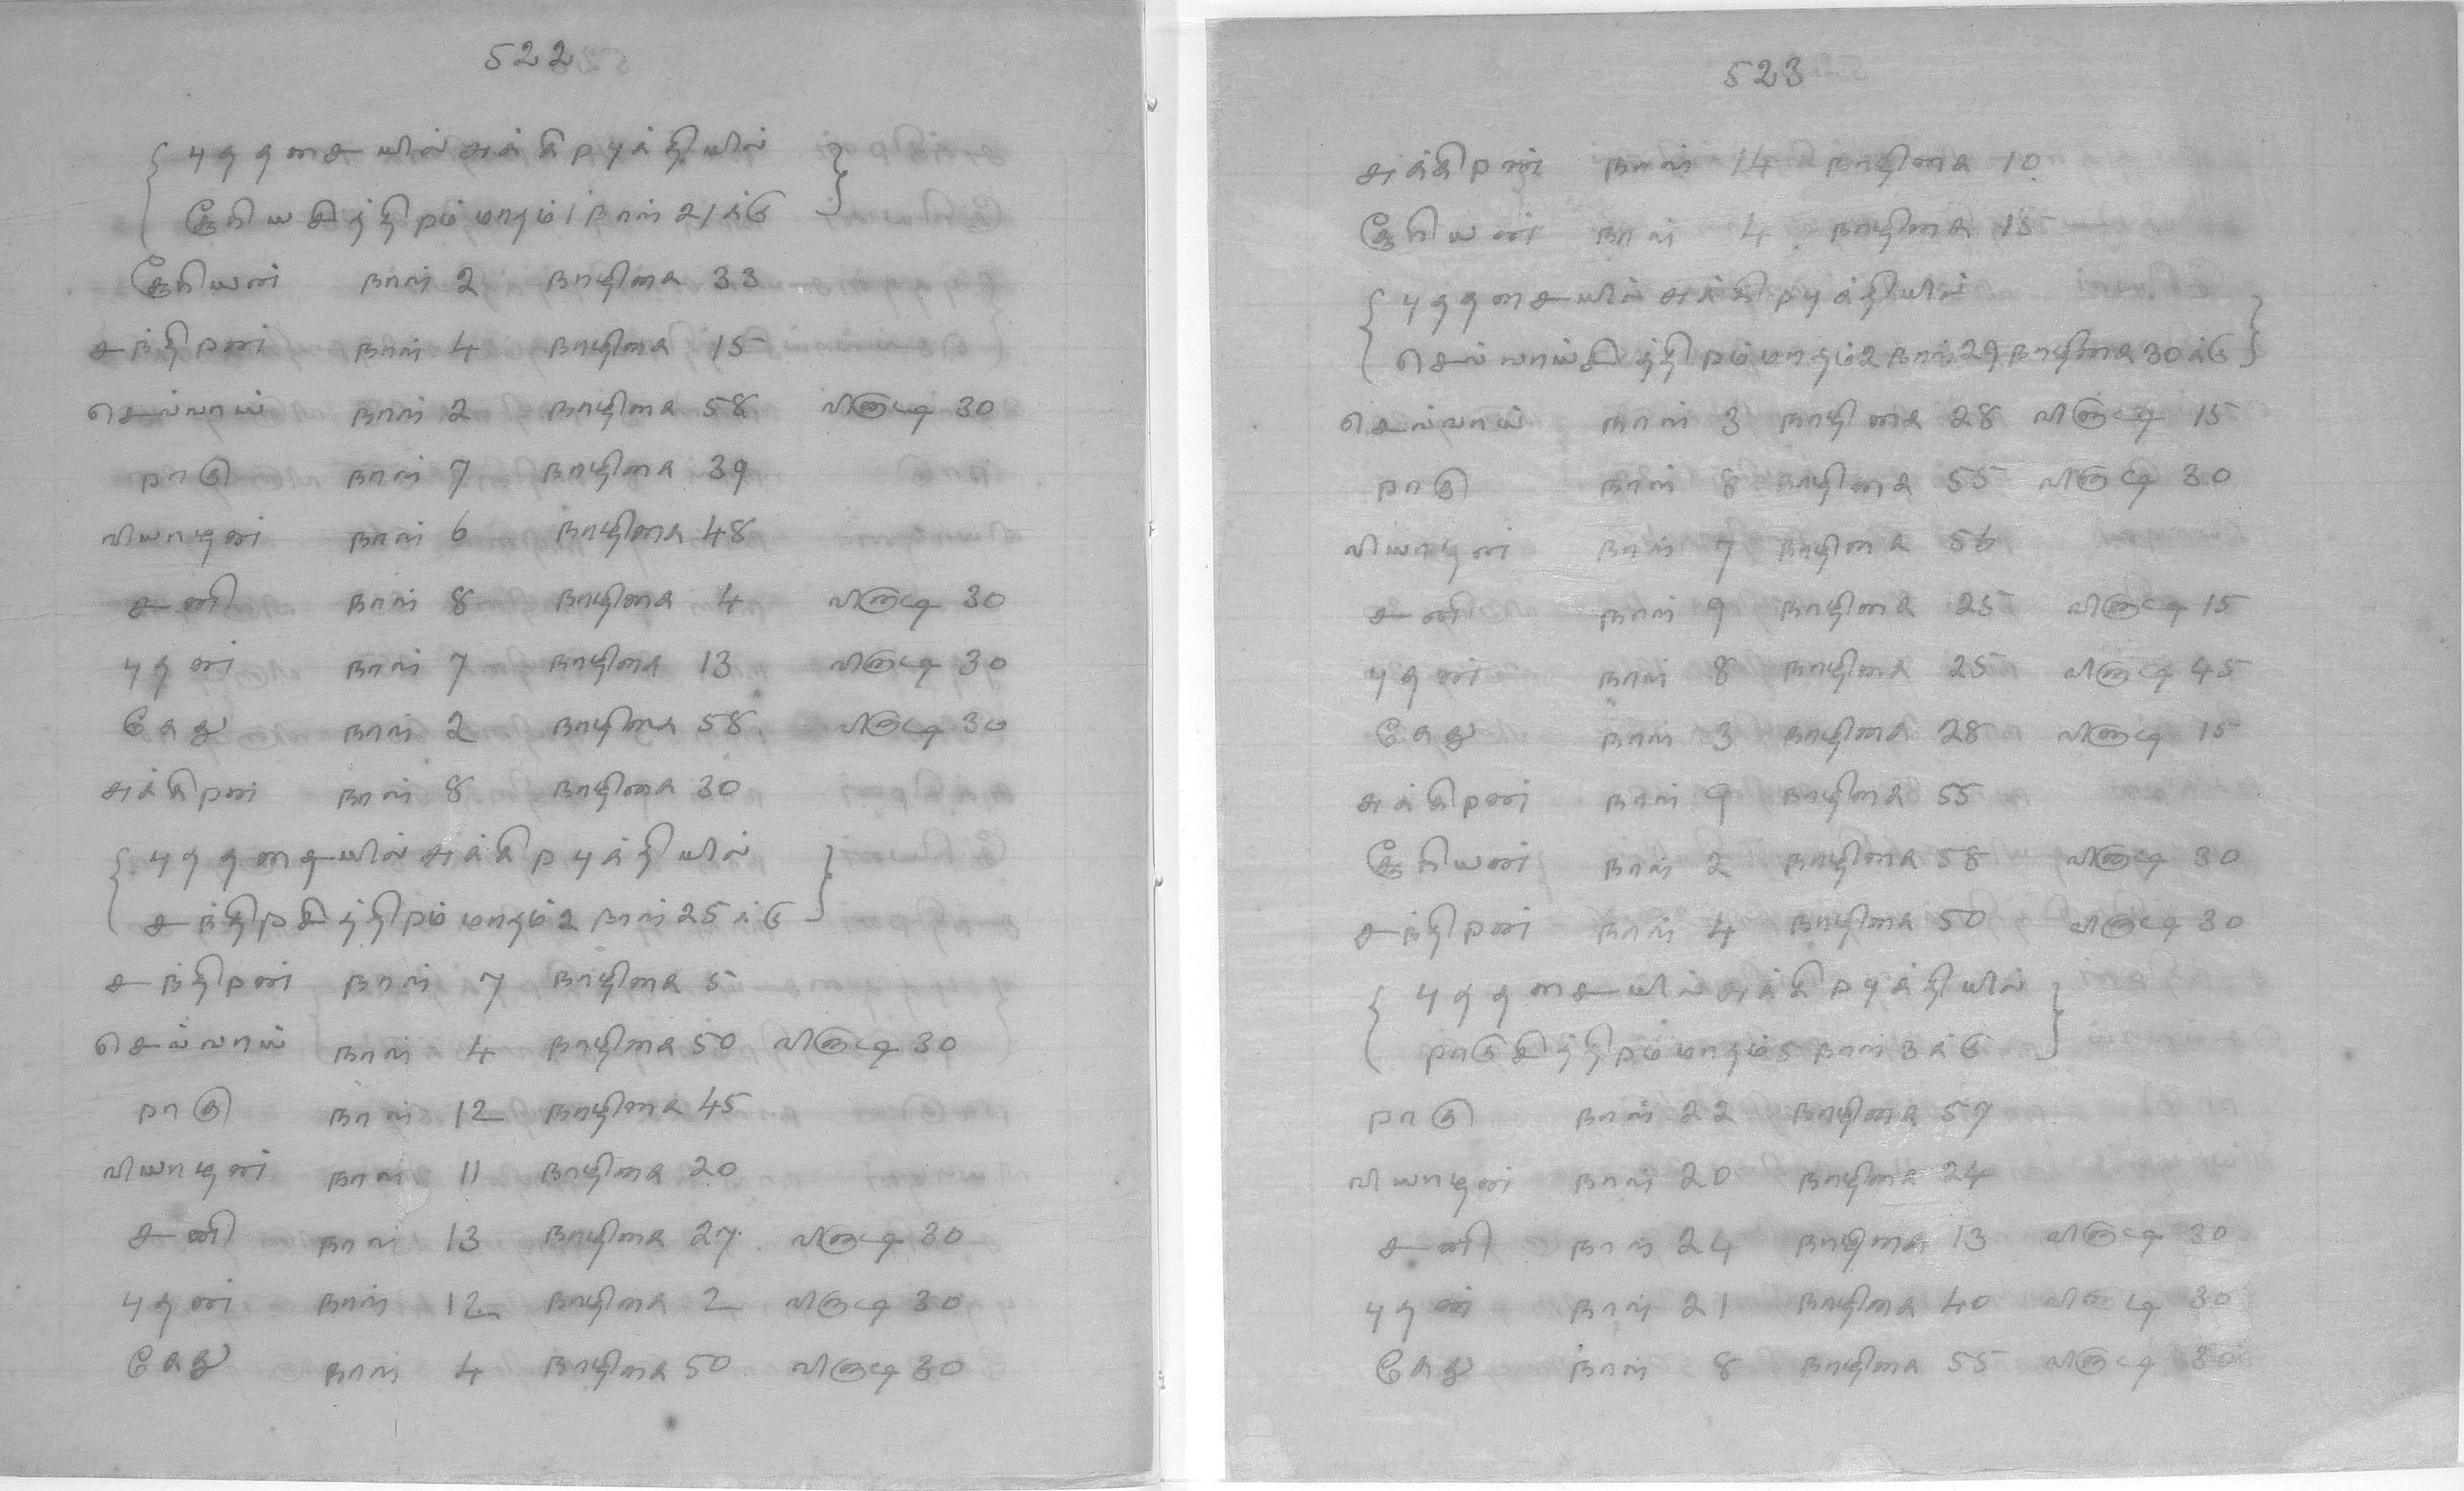 522
புதனதசையில் சுக்கிரபுக்தியில்
சூரியசித்திரம் மாதம் 1 நாள் 21 க்கு
சூரியன் நாள் 2 நாழிகை 33
சந்திரன் நாள் 4 நாழிகை 15
செவ்வாய் நாள் 2 நாழிகை 58 விநாடி 30
ராகு நாள் 7 நாழிகை 39
வியாழன் நாள் 6 நாழிகை 48
சனி நாள் 8 நாழிகை 4 விநாடி 30
புதன் நாள் 7 நாழிகை 13 விநாடி 30
கேது நாள் 2 நாழிகை 58 விநாடி 30
சுக்கிரன் நாள் 8 நாழிகை 30
புதனதசையில் சுக்கிரபுக்தியில்
சந்திரசித்திரம் மாதம் 2 நாள் 25 க்கு
சந்திரன் நாள் 7 நாழிகை 5
செவ்வாய் நாள் 4 நாழிகை 50 விநாடி 30
ராகு நாள் 12 நாழிகை 45
வியாழன் நாள் 11 நாழிகை 20
சனி நாள் 13 நாழிகை 27 விநாடி 30
புதன் நாள் 12 நாழிகை 2 விநாடி 30
கேது நாள் 4 நாழிகை 50 விநாடி 30
523
சுக்கிரன் நாள் 14 நாழிகை 10
சூரியன் நாள் 4 நாழிகை 15
புதனதசையில் சுக்கிரபுக்தியில்
செவ்வாய்சித்திரம் மாதம் 2 நாள் 29 நாழிகை 30 க்கு
செவ்வாய் நாள் 3 நாழிகை 28 விநாடி 15
ராகு நாள் 8 நாழிகை 55 விநாடி 30
வியாழன் நாள் 7 நாழிகை 56
சனி நாள் 9 நாழிகை 25 விநாடி 15
புதன் நாள் 8 நாழிகை 25 விநாடி 45
கேது நாள் 3 நாழிகை 28 விநாடி 15
சுக்கிரன் நாள் 9 நாழிகை 55
சூரியன் நாள் 2 நாழிகை 58 விநாடி 30
சந்திரன் நாள் 4 நாழிகை 50 விநாடி 30
புதனதசையில் சுக்கிரபுக்தியில்
ராகுசித்திரம் மாதம் 5 நாள் 3 க்கு
ராகு நாள் 22 நாழிகை 57
வியாழன் நாள் 20 நாழிகை 24
சனி நாள் 24 நாழிகை 13 விநாடி 30
புதன் நாள் 21 நாழிகை 40 விநாடி 30
கேது நாள் 8 நாழிகை 55 விநாடி 30